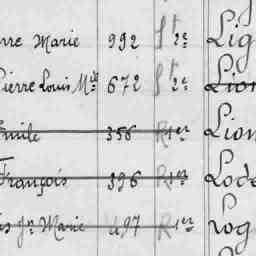 rre Marie 992 St 2e Lig
Pierre Louis Mie 672 St 2e Lion
Emile 356 R 1er Lion
François 396 R 1er Lode
is Jn Marie 497 R 1er rog